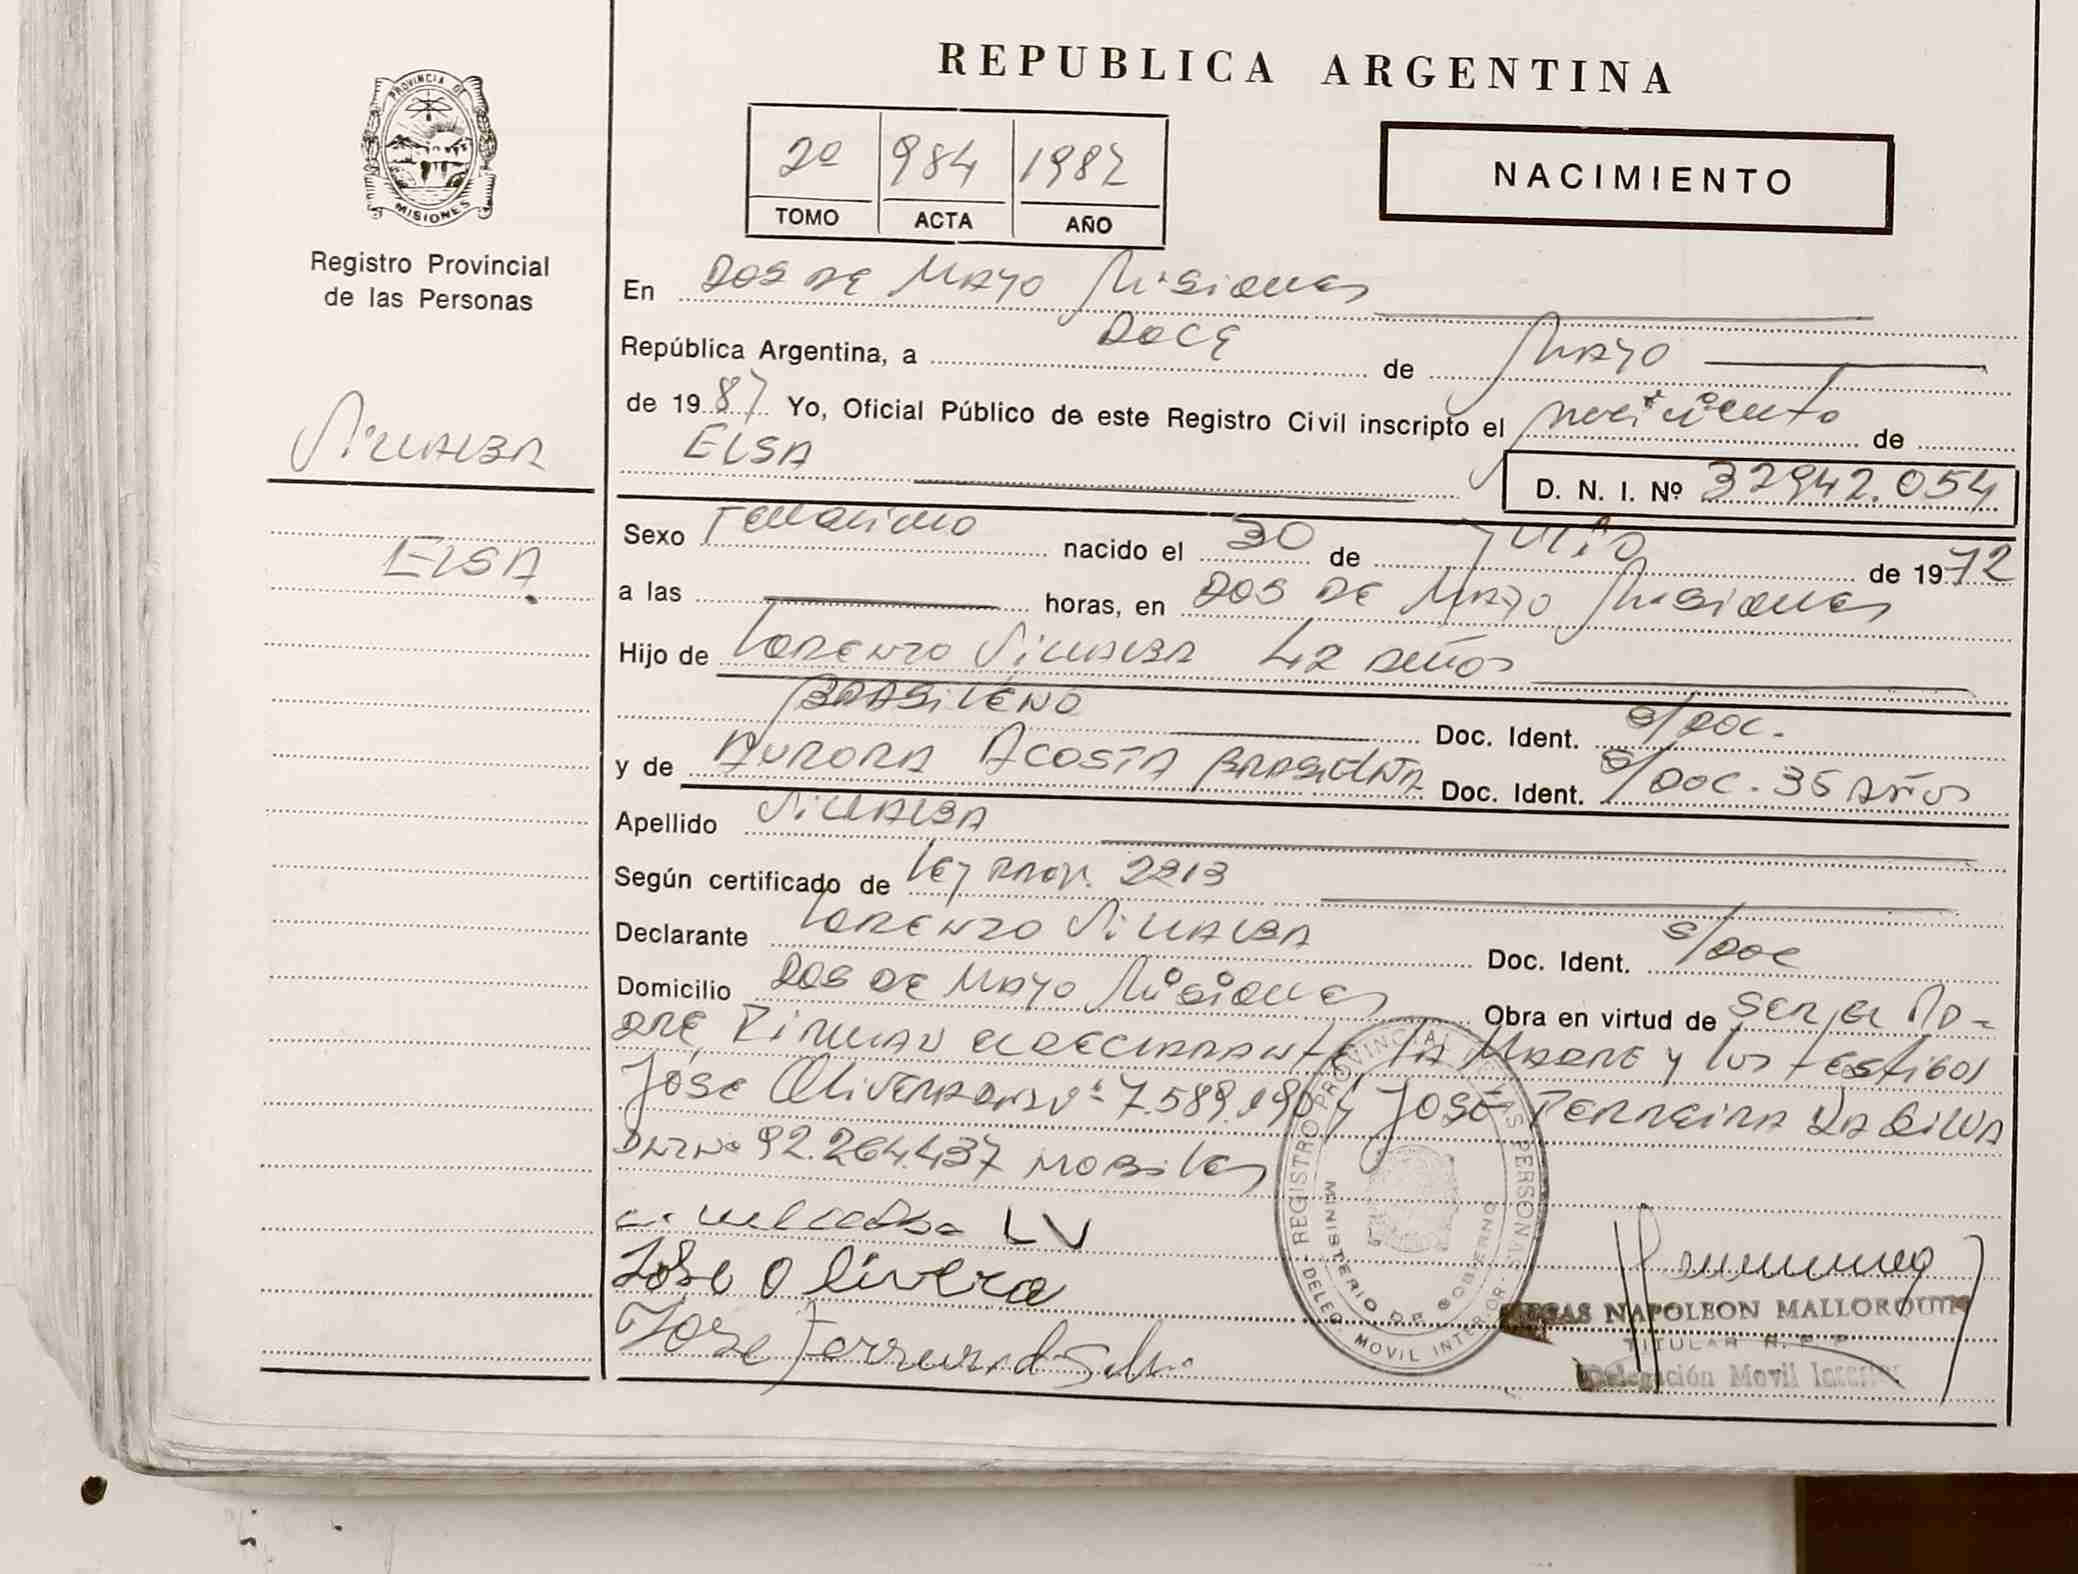 REPUBLICA ARGENTINA
PROVINCIA DE
MISIONES
Registro Provincial
de las Personas
2º 984 1987
TOMO ACTA AÑO
NACIMIENTO
Villalba
ELSA
En DOS DE MAYO Misiones
República Argentina, a DOCE de MAYO
de 1987 Yo, Oficial Público de este Registro Civil inscripto el nacimiento de
ELSA
D. N. I. Nº 32942.054
Sexo Femenino nacido el 30 de Julio de 1972
a las horas, en DOS DE MAYO Misiones
Hijo de LORENZO VILLALBA 42 AÑOS
BRASILENO Doc. Ident. S/DOC.
y de AURORA ACOSTA BRASILEÑA Doc. Ident. S/DOC. 35 AÑOS
Apellido VILLALBA
Según certificado de Ley PROV. 2213
Declarante LORENZO VILLALBA Doc. Ident. S/DOC
Domicilio DOS DE MAYO Misiones Obra en virtud de SER EL PA-
DRE, FIRMAN EL DECLARANTE, LA MADRE y los testigos
José Olivera DNI Nº 7.589.190 y José FERREIRA DA SILVA
DNI Nº 92.264.437 MOBILES
LV
Jose Olivera
Jose Ferreira d Silva
REGISTRO PROVINCIAL DE LAS PERSONAS
MINISTERIO DE GOBIERNO
DELEG. MOVIL INTERIOR
NAPOLEON MALLORQUIN
TITULAR R. P. P.
Delegación Movil Interior